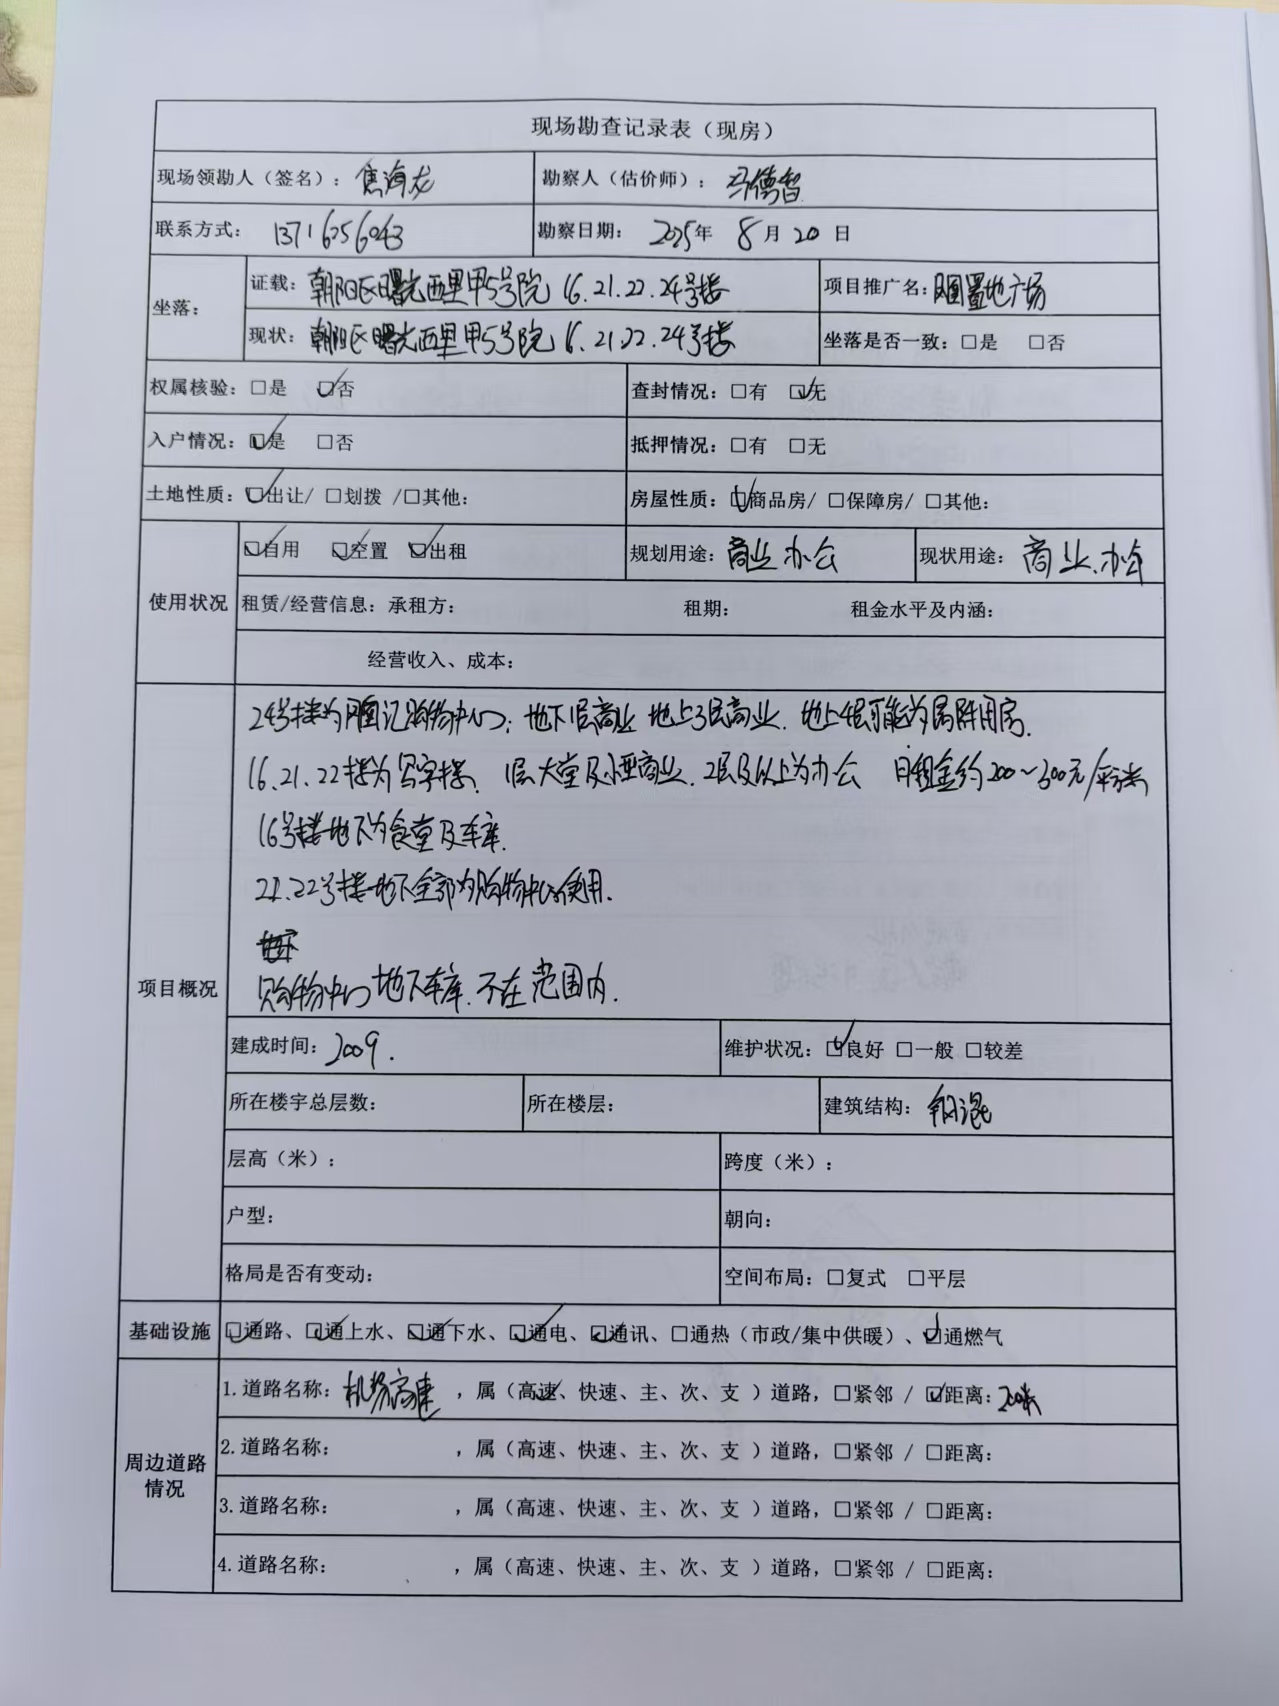 现场勘查记录表（现房）
现场领勘人（签名）：焦海龙 勘察人（估价师）：冯德智
联系方式：13716256043 勘察日期：2025年 8月20日
坐落：
证载：朝阳区曙光西里甲5号院16.21.22.24号楼 项目推广名：凤凰置地广场
现状：朝阳区曙光西里甲5号院16.21.22.24号楼 坐落是否一致：□是 □否
权属核验：□是 ☑否 查封情况：□有 ☑无
入户情况：☑是 □否 抵押情况：□有 □无
土地性质：☑出让/ □划拨 /□其他： 房屋性质：☑商品房/ □保障房/ □其他：
使用状况
☑自用 ☑空置 ☑出租 规划用途：商业 办公 现状用途：商业、办公
租赁/经营信息：承租方： 租期： 租金水平及内涵：
经营收入、成本：
项目概况
24号楼为凤凰汇购物中心：地下1层商业 地上3层商业．地上4层可能为附用房．
16.21.22楼为写字楼、1层大堂及小商业．2层及以上为办公 月租金约200～300元/平方米
16号楼地下为食堂及车库．
21.22号楼地下全部为购物中心使用．
购物中心地下车库．不在范围内．
建成时间：2009． 维护状况：☑良好 □一般 □较差
所在楼宇总层数： 所在楼层： 建筑结构：钢混
层高（米）： 跨度（米）：
户型： 朝向：
格局是否有变动： 空间布局：□复式 □平层
基础设施 ☑通路、☑通上水、☑通下水、☑通电、☑通讯、□通热（市政/集中供暖）、☑通燃气
周边道路情况
1.道路名称：机场高速 ，属（高速、快速、主、次、支 ）道路，□紧邻 / ☑距离：200米
2.道路名称： ，属（高速、快速、主、次、支 ）道路，□紧邻 / □距离：
3.道路名称： ，属（高速、快速、主、次、支 ）道路，□紧邻 / □距离：
4.道路名称： ，属（高速、快速、主、次、支 ）道路，□紧邻 / □距离：